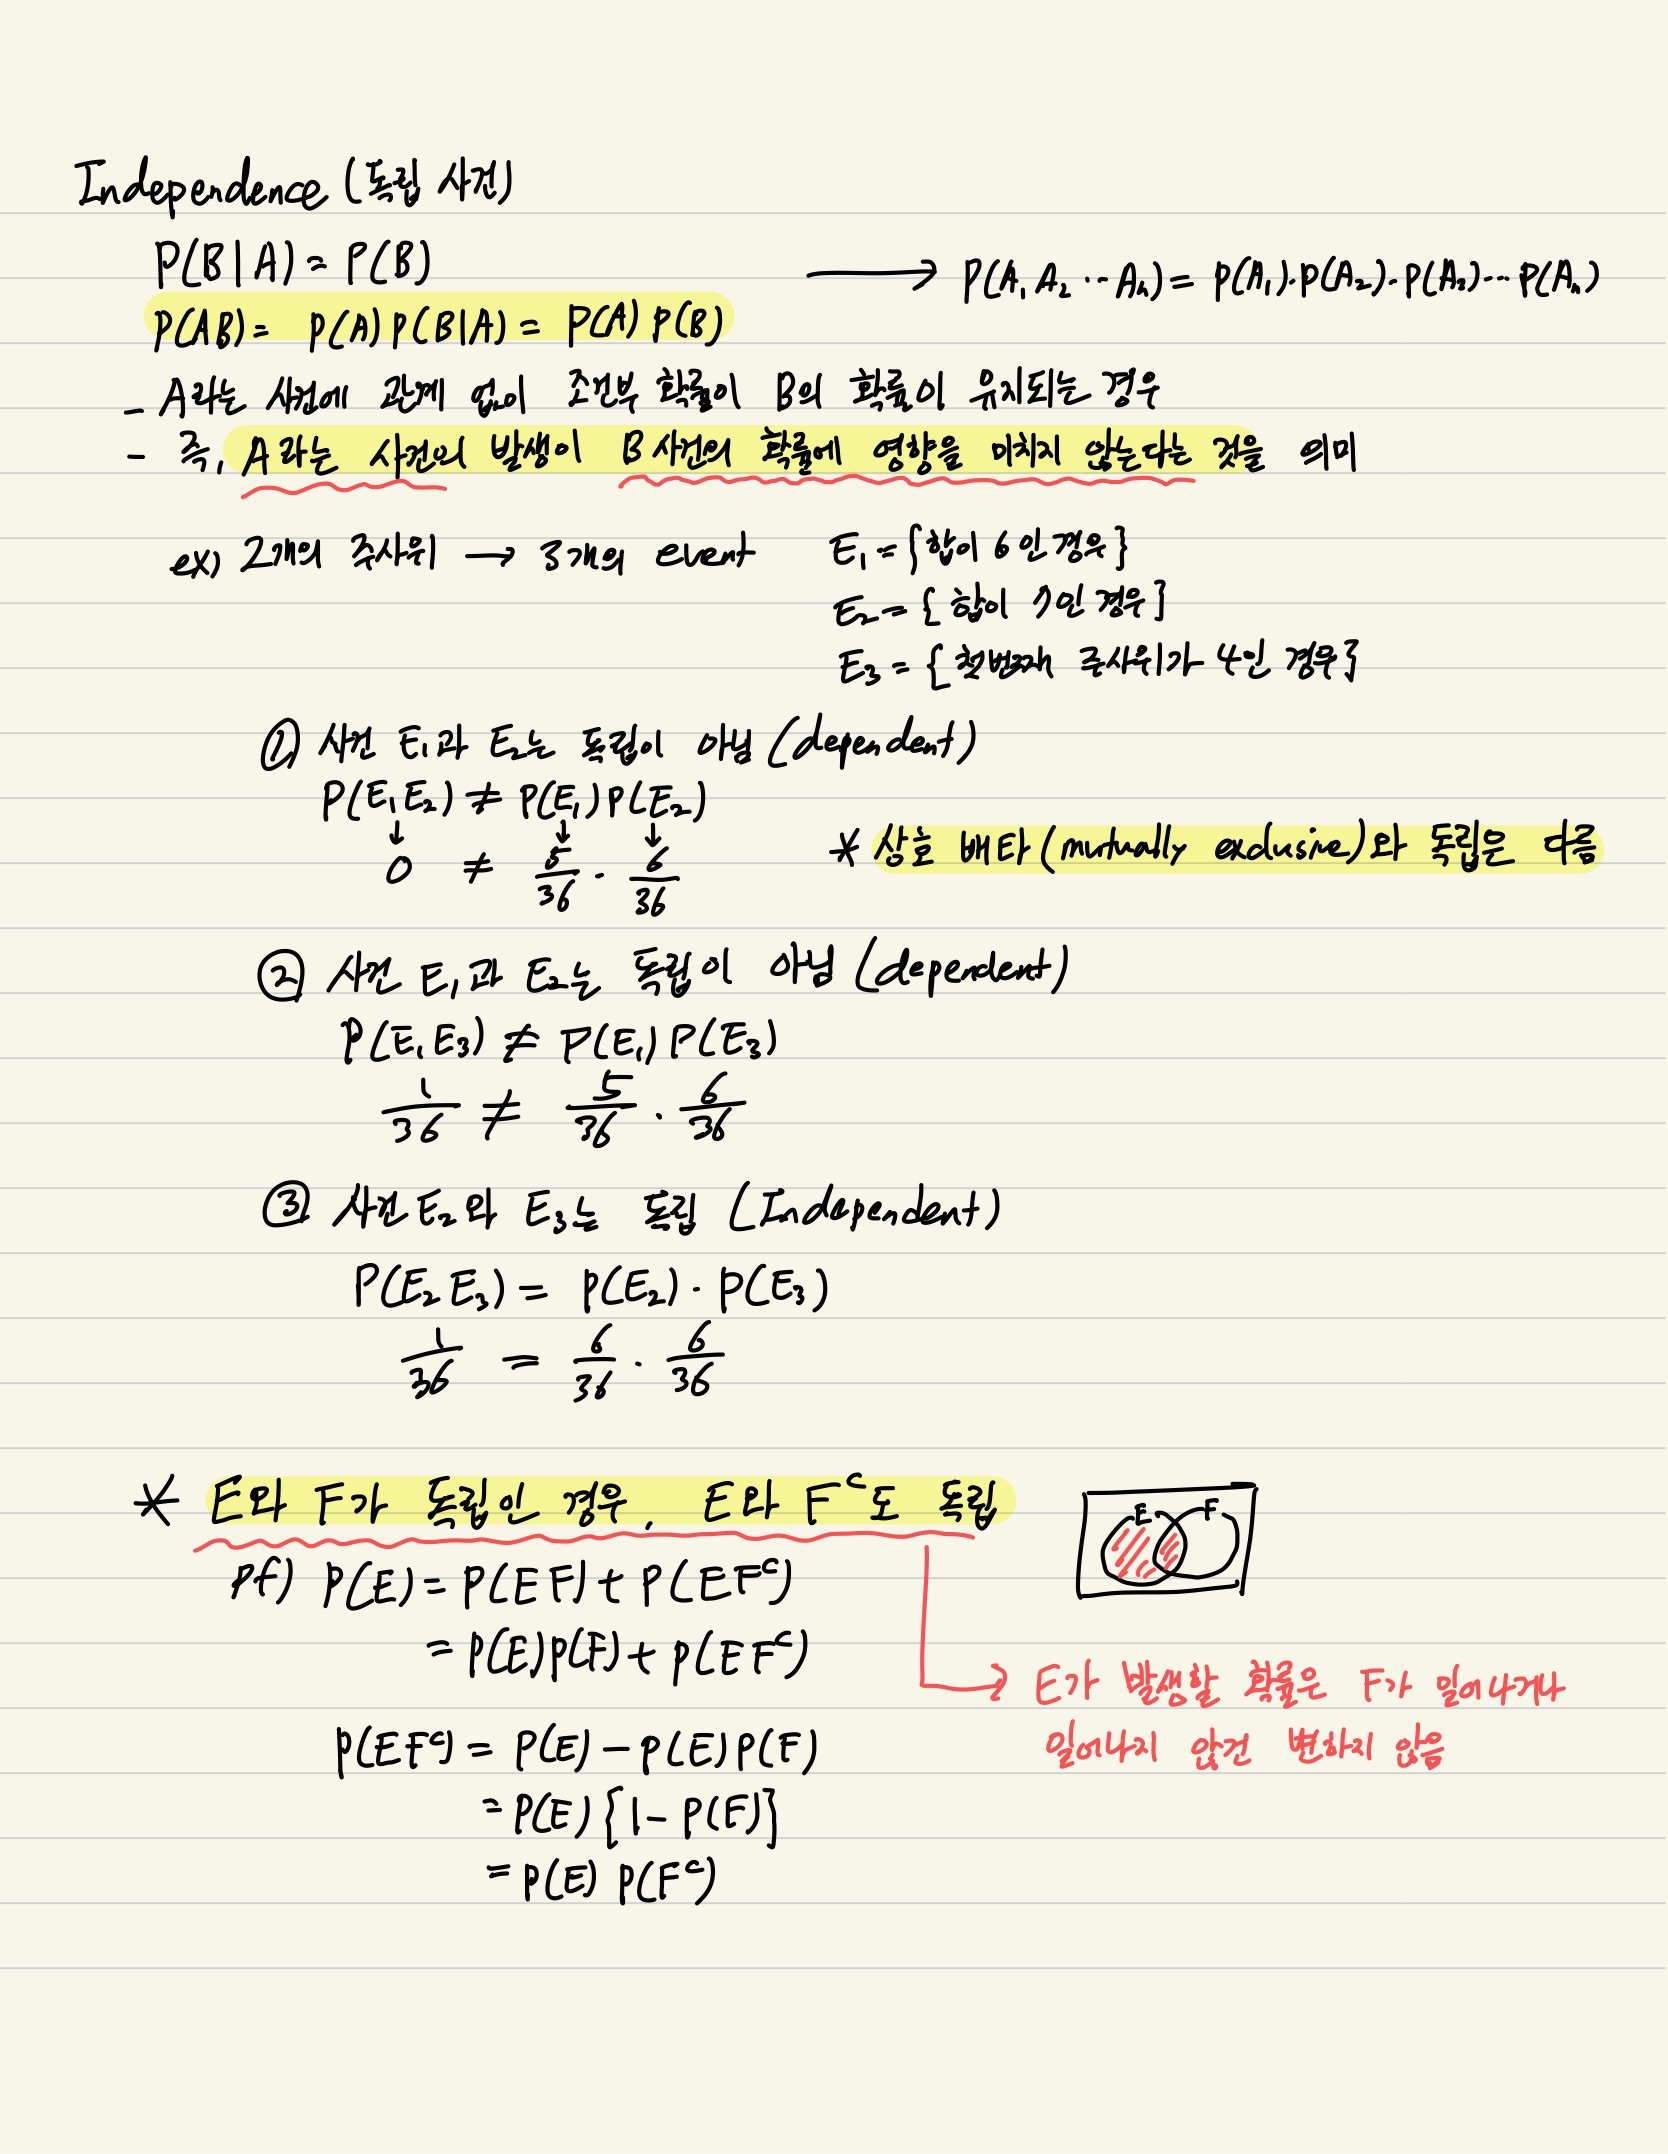 Independence (독립 사건)
P(B|A) = P(B)
P(AB) = P(A) P(B|A) = P(A) P(B)
→ P(A₁ A₂ ⋯ Aₙ) = P(A₁)·P(A₂)·P(A₃)⋯P(Aₙ)
- A라는 사건에 관계 없이 조건부 확률이 B의 확률이 유지되는 경우
- 즉, A라는 사건의 발생이 B 사건의 확률에 영향을 미치지 않는다는 것을 의미
ex) 2개의 주사위 → 3개의 event
E₁ = {합이 6인 경우}
E₂ = {합이 7인 경우}
E₃ = {첫번째 주사위가 4인 경우}
① 사건 E₁과 E₂는 독립이 아님 (dependent)
P(E₁E₂) ≠ P(E₁)P(E₂)
↓ ↓ ↓
0 ≠ 5/36 · 6/36
* 상호 배타(mutually exclusive)와 독립은 다름
② 사건 E₁과 E₂는 독립이 아님 (dependent)
P(E₁E₃) ≠ P(E₁)P(E₃)
1/36 ≠ 5/36 · 6/36
③ 사건 E₂와 E₃는 독립 (Independent)
P(E₂E₃) = P(E₂)·P(E₃)
1/36 = 6/36 · 6/36
* E와 F가 독립인 경우, E와 Fᶜ도 독립
E F
pf) P(E) = P(EF) + P(EFᶜ)
= P(E)P(F) + P(EFᶜ)
→ E가 발생할 확률은 F가 일어나거나
일어나지 않건 변하지 않음
P(EFᶜ) = P(E) - P(E)P(F)
= P(E) [1 - P(F)]
= P(E) P(Fᶜ)